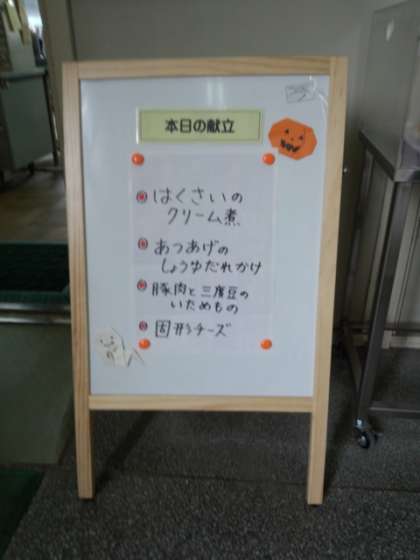 本日の献立
はくさいの
クリーム煮
あつあげの
しょうゆだれかけ
豚肉と三度豆の
いためもの
固形チーズ